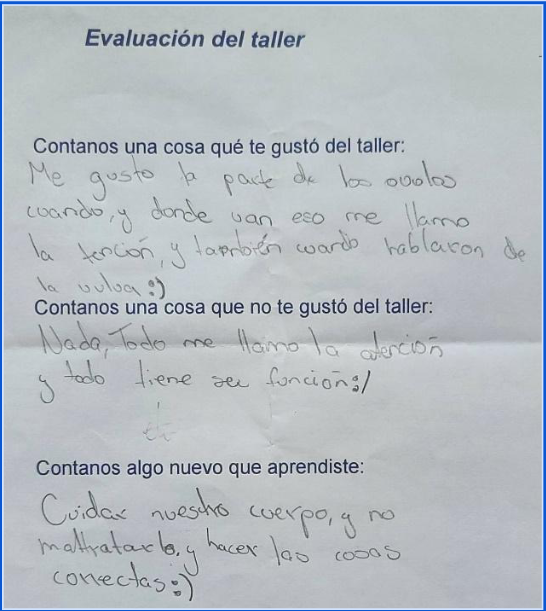 Evaluación del taller
Contanos una cosa qué te gustó del taller:
Me gusto la parte de los ovulos
cuando, y donde van eso me llamo
la tención, y también cuando hablaron de
la vulva :)
Contanos una cosa que no te gustó del taller:
Nada, Todo me llamo la atención
y todo tiene su función :/
Contanos algo nuevo que aprendiste:
Cuidar nuestro cuerpo, y no
maltratarlo, y hacer las cosas
correctas :)